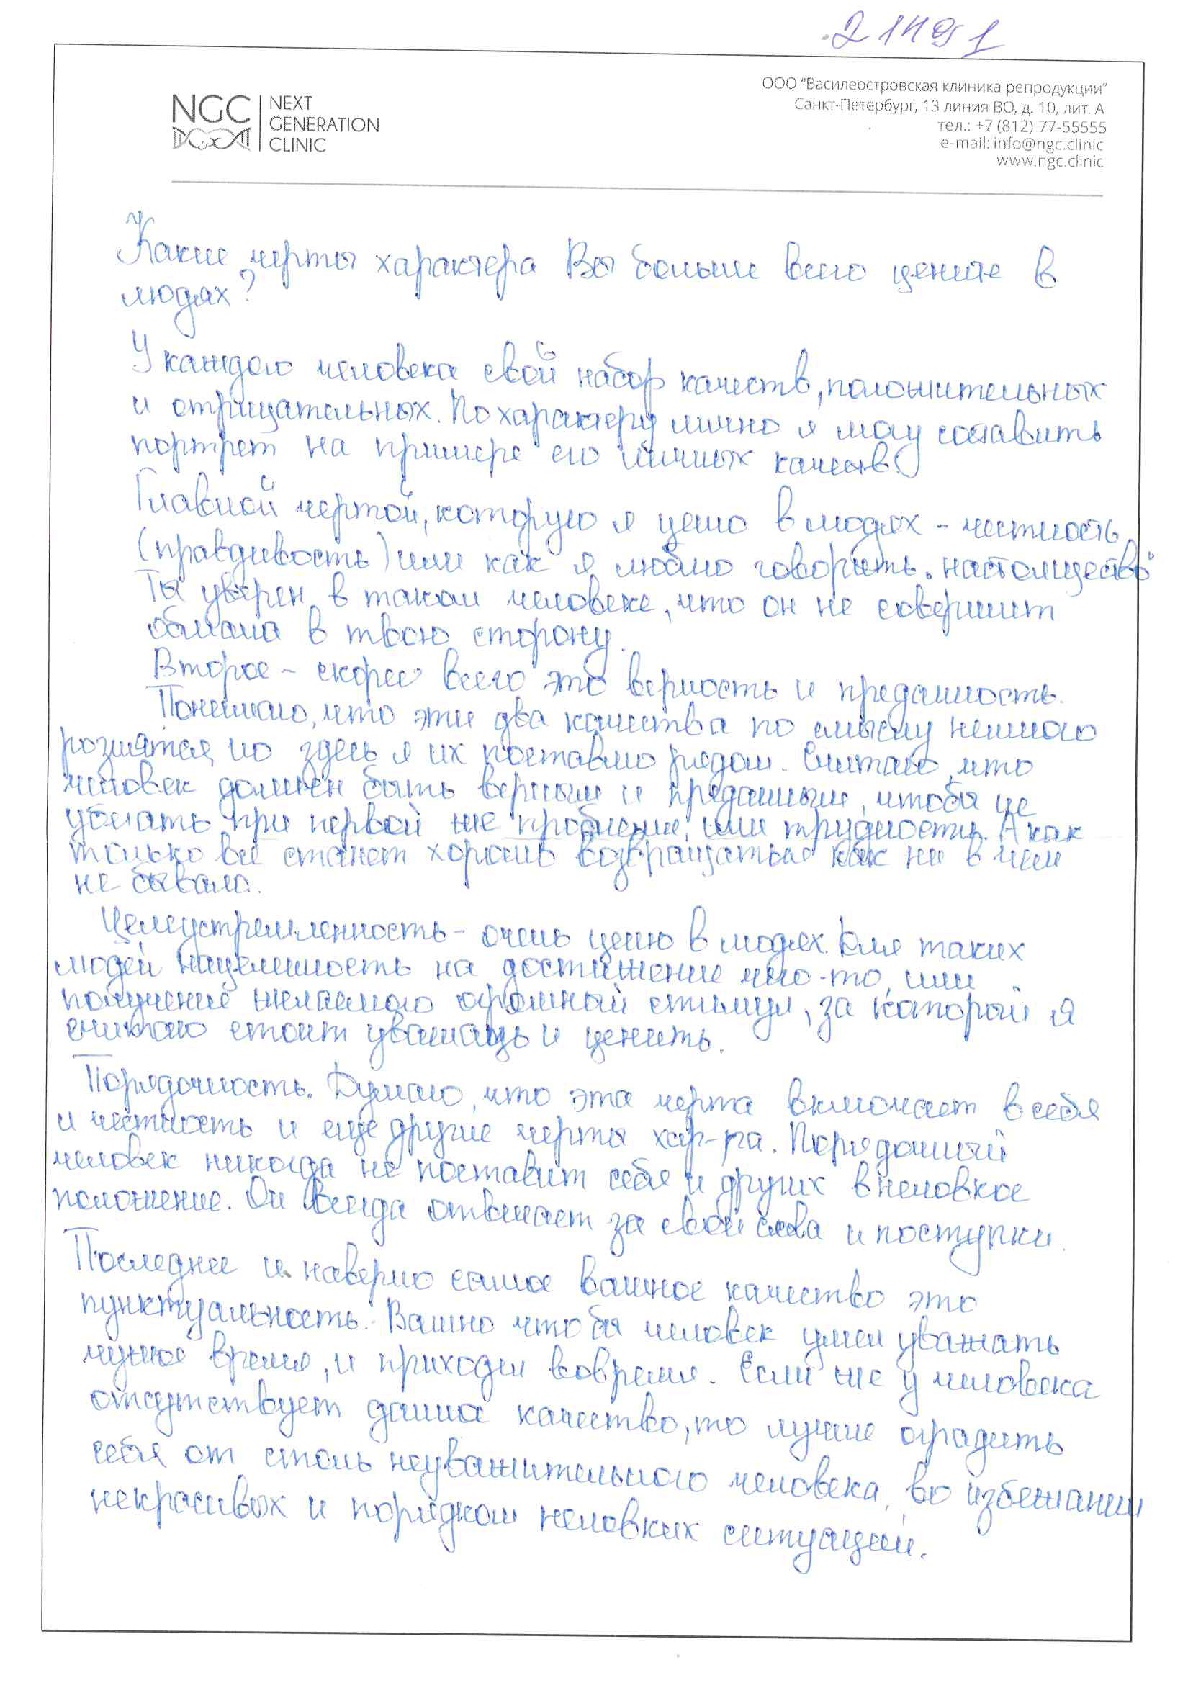 21491
NGC
NEXT
GENERATION
CLINIC
ООО "Василеостровская клиника репродукции"
Санкт-Петербург, 13 линия ВО, д. 10, лит. А
тел.: +7 (812) 77-55555
e-mail: info@ngc.clinic
www.ngc.clinic
Какие черты характера Вы больше всего цените в
людях?
У каждого человека свой набор качеств, положительных
и отрицательных. По характеру лично я могу составить
портрет на примере его личных качеств.
Главной чертой, которую я ценю в людях - честность
(правдивость) или как я люблю говорить "настоящество"
Ты уверен в таком человеке, что он не совершит
обмана в твою сторону.
Второе - скорее всего это верность и преданность.
Понимаю, что эти два качества по смыслу немного
розмятся, но здесь я их поставлю рядом. Считаю, что
человек должен быть верным и преданным, чтобы не
убегать при первой же проблеме, или трудности. А как
только все станет хорошо возвращаться как ни в чем
не бывало.
Целеустремленность - очень ценю в людях. Для таких
людей нацеленность на достижение чего-то, или
получение желаемого огромный стимул, за который я
считаю стоит уважать и ценить.
Порядочность. Думаю, что эта черта включает в себя
и честность и еще другие черты хар-ра. Порядочный
человек никогда не поставит себя и других в неловкое
положение. Он всегда отвечает за свои слова и поступки.
Последнее и наверно самое важное качество это
пунктуальность. Важно что бы человек умел уважать
чужое время, и приходил вовремя. Если же у человека
отсутствует данное качество, то лучше оградить
себя от столь неуважительного человека, во избежании
некрасивых и порядком неловких ситуаций.